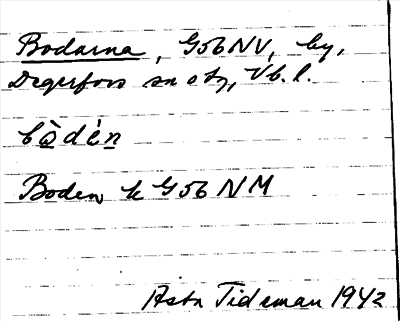 Bodarna, G56NV, by,
Degerfors sn o tg, Vb. l.
bò̱dèn̲
Boden k G56 NM
Asta Tideman 1942